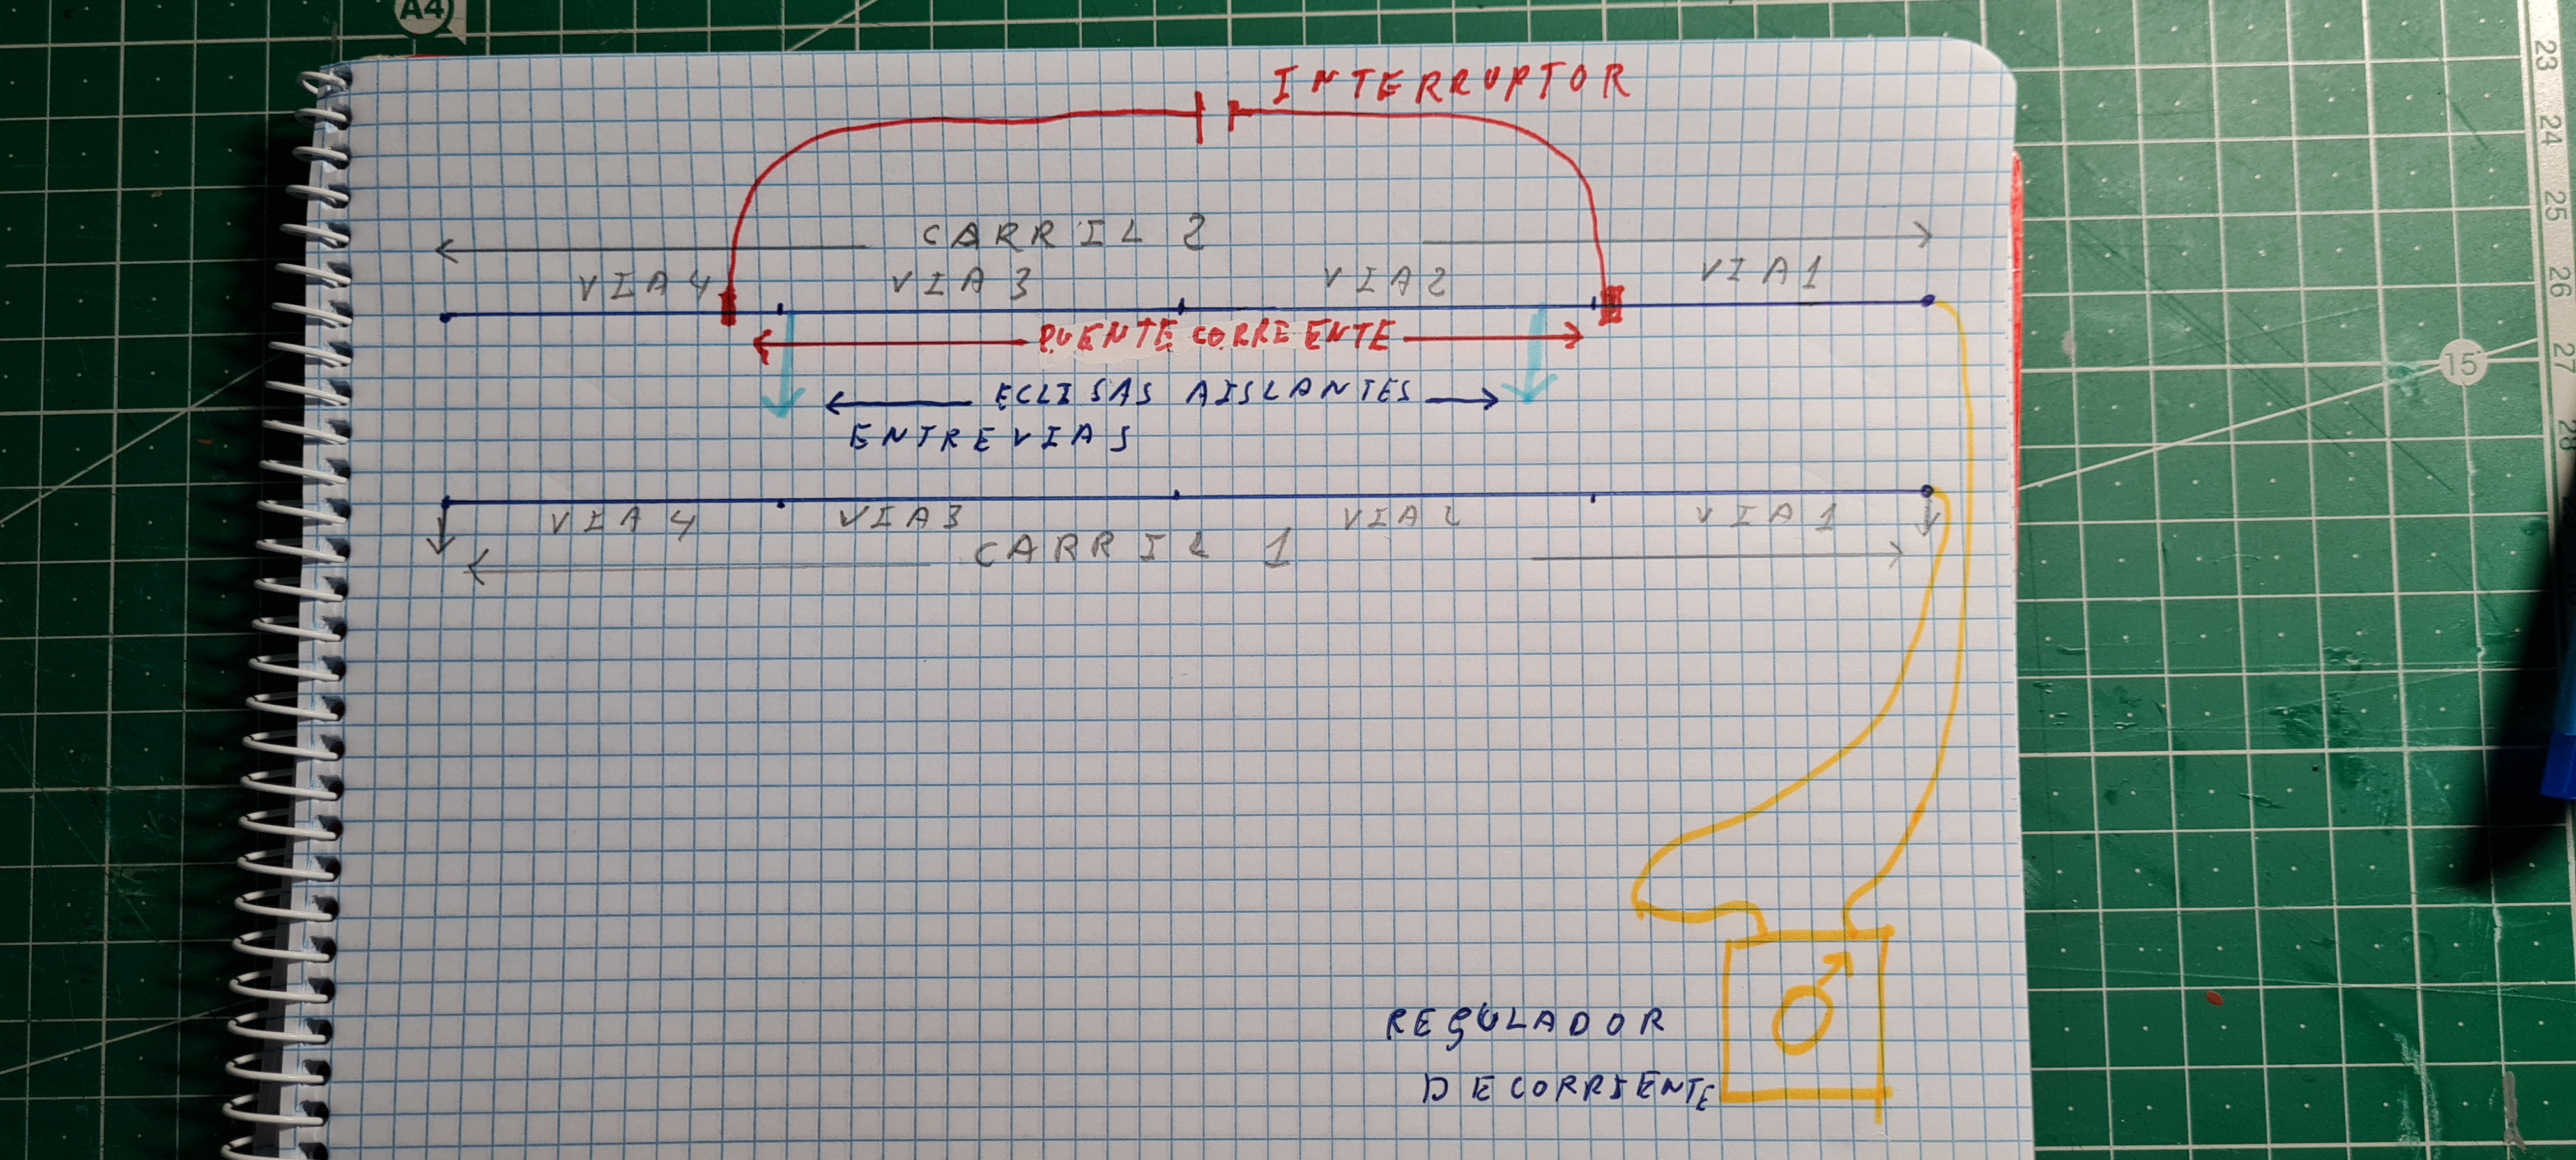 A4
INTERRUPTOR
CARRIL 2
VIA 4 VIA 3 VIA 2 VIA 1
PUENTE CORRIENTE
ECLISAS AISLANTES
ENTRE VIAS
VIA 4 VIA 3 VIA 2 VIA 1
CARRIL 1
REGULADOR
DE CORRIENTE
23
24
25
26
27
28
15